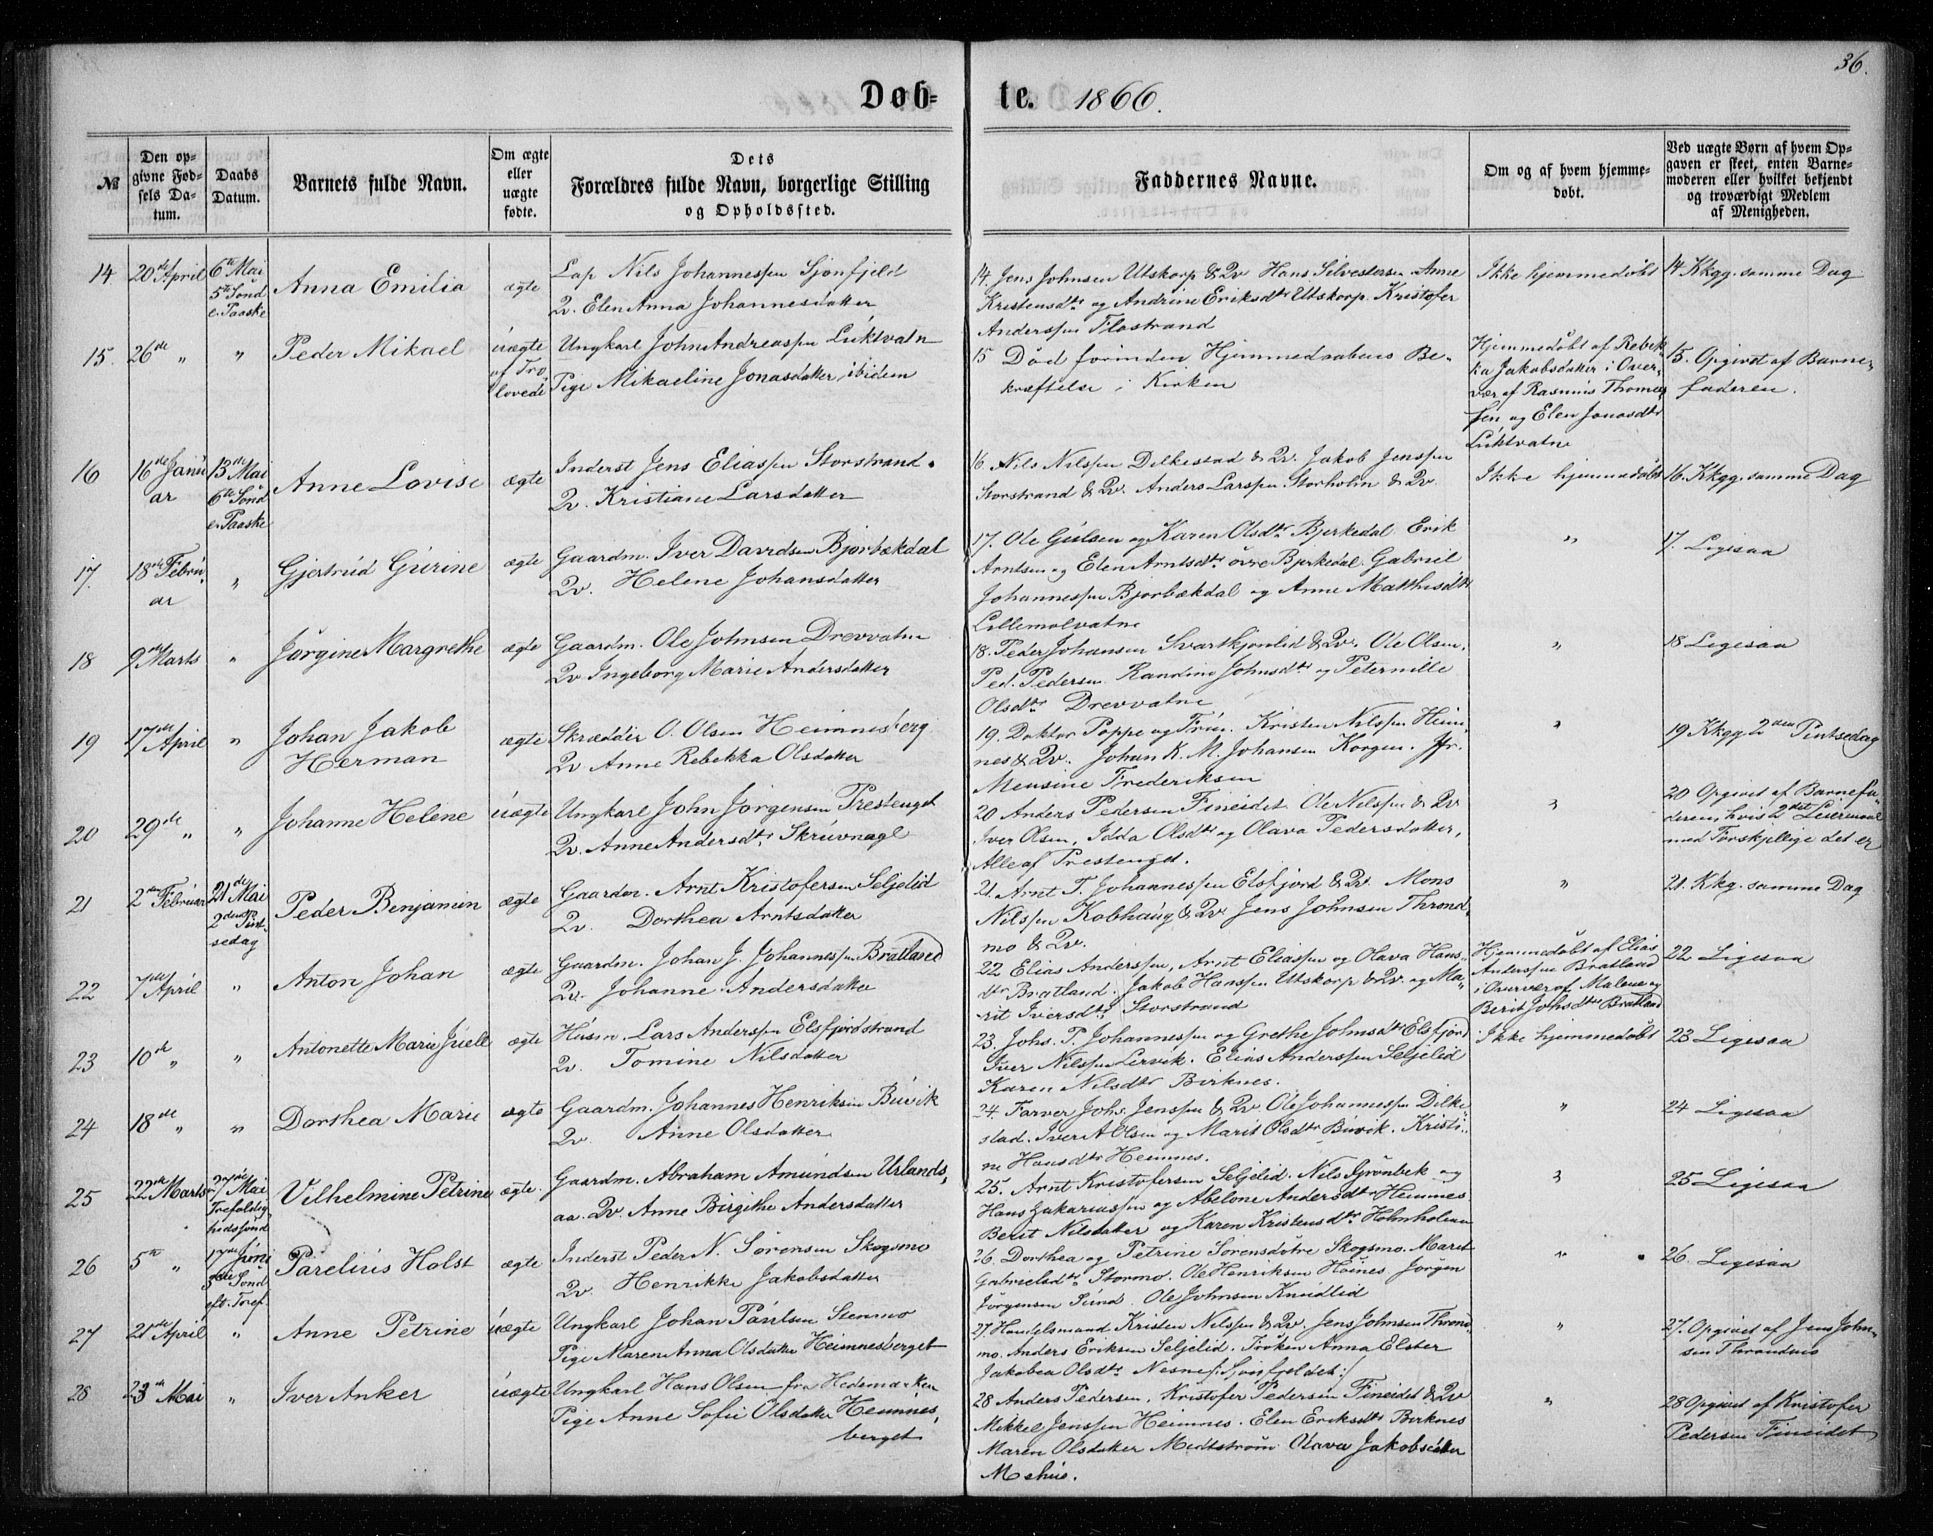 36.
Døb-
te. 1866.
№
Den op-
givne Fød-
sels Da-
tum.
Daabs
Datum.
Barnets fulde Navn.
Om ægte
eller
uægte
fødte.
Dets
Forældres fulde Navn, borgerlige Stilling
og Opholdssted.
Faddernes Navne.
Om og af hvem hjemme-
døbt.
Ved uægte Børn af hvem Op-
gaven er skeet, enten Barne-
moderen eller hvilket bekjendt
og troværdigt Medlem
af Menigheden.
14
20de April
6te Mai
5te Sönd
e. Paaske
Anna Emilia
ægte
Lap Nils Johannessen Sjonfjeld
Qv. Elen Anna Johannesdatter
14. Jens Johnsen Utskorp & Qv Hans Silvestersen Anne
Kristensdtr og Andrine Eriksdtr Utskorp. Kristofer
Anderssen Flostrand
Ikke hjemmedøbt
14 Kkgg. samme Dag
15.
26de "
"
Peder Mikael
uægte
af Tro-
lovede
Ungkarl John Andreassen Luktvatn
Pige Mikaeline Jonasdatter, ibidem
15 Död forinden Hjemmedaabens Be-
kræftelse i Kirken
Hjemmedöbt af Rebek-
ka Jakobsdatter i Over-
vær af Rasmus Thomes-
sen og Elen Jonasdtr
Luktvatne
15. Opgivet af Barne-
faderen.
16
16de Janu
ar
13de Mai
6te Sönd
e. Paaske
Anne Lovise
ægte
Inderst Jens Eliassen Storstrand.
Qv. Kristiane Larsdatter
16 Nils Nilssen Dilkestad & Qv. Jakob Jenssen
Storstrand & Qv. Anders Larssen Storholm & Qv
Ikke hjemmedöbt
16. Kkgg. samme Dag
17.
18de Febru-
ar
"
Gjertrud Gurine
ægte
Gaardm. Iver Davidsen Bjorbækdal
Qv. Helene Johansdatter
17. Ole Gulsen og Karen Olsdtr Bjerkedal Erik
Arntsen og Elen Arntsdtr övre Bjerkedal. Gabriel
Johannessen Bjorbækdal og Anne Matthisdtr
Lillemolvatne
"
17. Ligesaa
18
9de Marts
"
Jörgine Margrethe
ægte
Gaardm. Ole Johnsen Drevvatne
Qv Ingeborg Marie Andersdatter
18. Peder Johansen Svartkjönlid & Qv. Ole Olsen.
Ped. Pedersen Randine Johnsdtr og Peternille
Olsdtr Drevvatne
"
18 Ligesaa
19
17de April
"
Johan Jakob
Herman
ægte
Skrædder O. Olsen Heimnesberg
Qv Anne Rebekka Olsdatter
19. Doktor Poppe og Frue. Kristen Nilssen Heim-
nes & Qv. Johan K. M. Johansen Korgen. Jfr.
Mensine Frederiksen
"
19 Kkgg 2den Pintsedag
20
29de "
"
Johanne Helene
uægte
Ungkarl John Jörgensen Prestenget
Qv. Anne Andersdtr Skruvnagl
20 Anders Pedersen Fineidet. Ole Nilssen & Qv
Iver Olsen, Idda Olsdtr og Olava Pedersdatter,
Alle af Prestenget.
"
20 Opgivet af Barnefa-
deren, hvis 2det Leiermaal
med Forskjellige det er
21
2den Februar
21de Mai
2den Pint-
sedag
Peder Benjamin
ægte
Gaardm. Arnt Kristofersen Seljelid
Qv. Dorthea Arntsdatter
21. Arnt T. Johannessen Elsfjord & Qv. Mons
Nilssen Kobhaug & Qv Jens Johnsen Thrond-
mo & Qv.
"
21. Kkg. samme Dag
22
7de April
"
Anton Johan
ægte
Gaardm. Johan J. Johannessen Bratland
Qv. Johanne Andersdatter
22 Elias Anderssen, Arnt Eliassen og Olava Hans-
dtr Bratland. Jakob Hanssen Utskorp & Qv. og Ma-
rit Iversdtr Storstrand
Hjemmedöbt af Elias
Anderssen Bratland
i Overvær af Malene og
Berit Johsdtr Bratland
22 Ligesaa
23
10de "
"
Antonette Marie Juell
ægte
Husm. Lars Anderssen Elsfjordstrand
Qv. Tomine Nilsdatter
23. Johs. T. Johannessen og Grethe Johnsdtr Elsfjord
Iver Nilssen Lervik. Elias Anderssen Seljelid
Karen Nilsdtr Birknes.
Ikke hjemmedöbt
23 Ligesaa
24
18de "
"
Dorthea Marie
ægte
Gaardm. Johannes Henriksen Buvik
Qv. Anne Olsdatter
24. Farver Johs. Jenssen & Qv Ole Johannessen Dilke-
stad. Iver A Olsen og Marit Olsdtr Buvik. Kristi-
ne Hansdtr Hemnes.
"
24 Ligesaa
25
22de Marts
27de Mai
Trefoldig-
hedssönd
Vilhelmine Petrine
ægte.
Gaardm. Abraham Amundsen Urlands-
aa. Qv. Anne Birgithe Andersdatter
25. Arnt Kristofersen Seljelid. Nils Grönbek og
Hans Zakariassen og Abelone Andersdtr Hemnes
Berit Nilsdatter og Karen Kristensdtr Holmholmen
"
25 Ligesaa
26
5te "
17de Juni
3die Sönd
eft. Tref.
Parelius Holst
ægte
Inderst Peder N. Sörensen Skogsmo
Qv. Henrikke Jakobsdatter
26. Dorthea og Petrine Sörensdötre Skogsmo. Marit
Gabrielsdtr Stormo. Ole Henriksen Huines. Jorgen
Jörgensen Sund. Ole Johnsen Knudlid
"
26. Ligesaa
27
21de April
"
Anne Petrine
uægte
Ungkarl Johan Paulsen Stenmo
Pige Maren Anna Olsdatter Heimnesberget
27 Handelsmand Kristen Nilssen & Qv. Jens Johnsen Thrond-
mo. Anders Eriksen Seljelid. Fröken Anna Elster
Jakobea Olsdtr Nesne
"
27. Opgivet af Jens John-
sen Throndmo
28
23de Mai
"
Iver Anker
uægte
Ungkarl Hans Olsen fra Hedemarken
Pige Anne Sofie Olsdatter Heimnes-
berget
28 Anders Pedersen, Kristofer Pedersen Fineidet & Qv
Mikkel Jenssen Heimnes. Elen Eriksdtr Birknes
Maren Olsdatter Medtström. Olava Jakobsdatter
Mehus.
"
28 Opgivet af Kristofer
Pedersen Fineidet